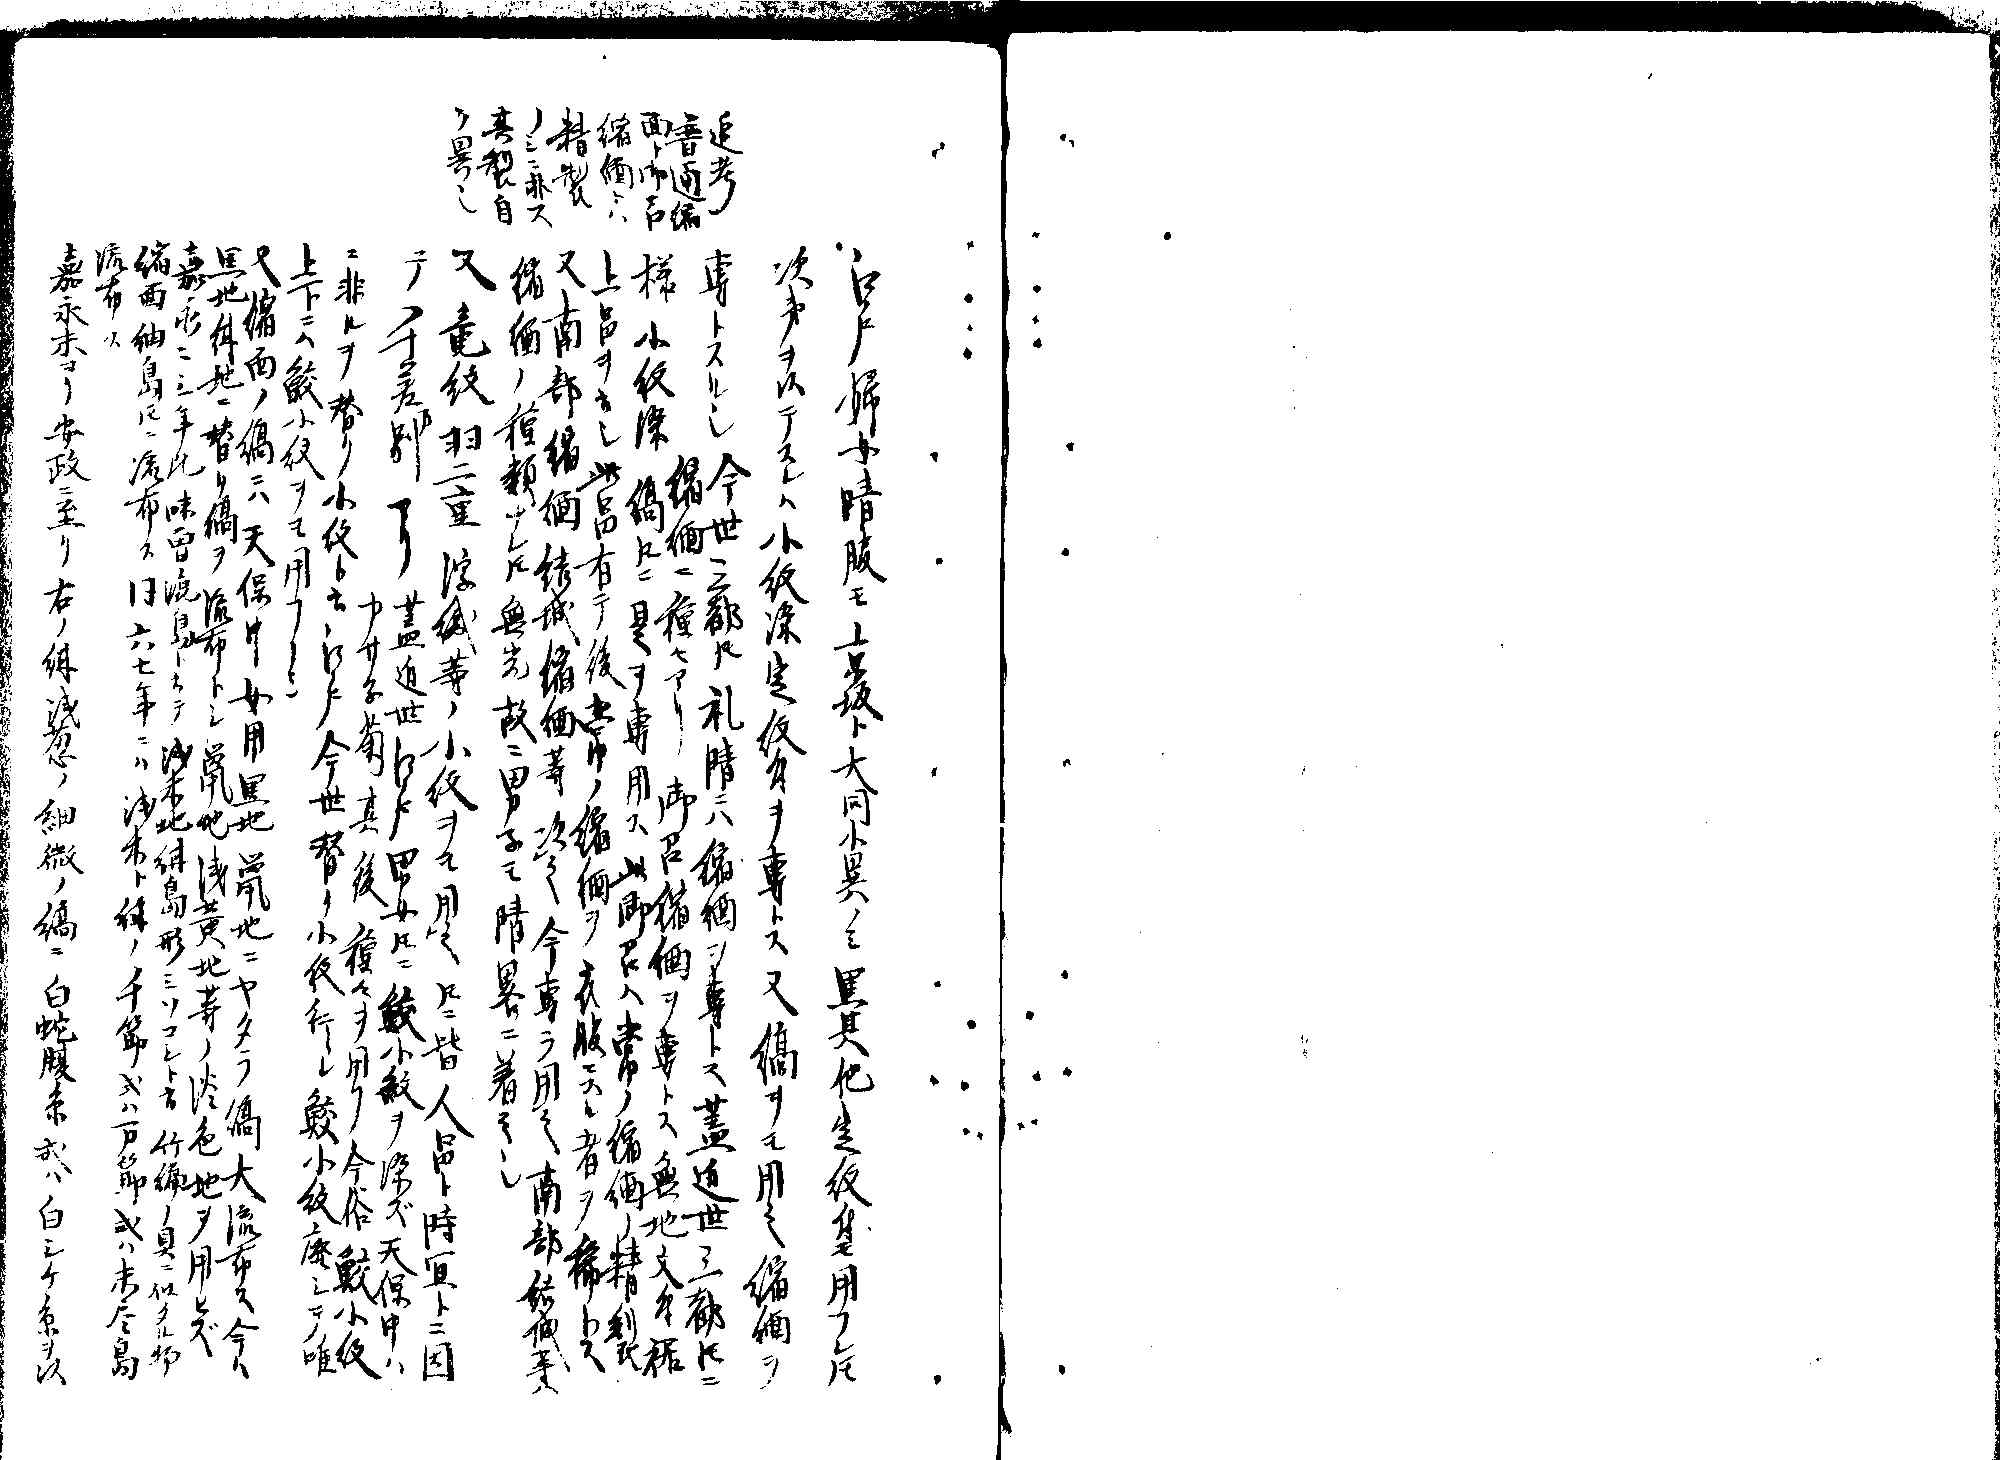 追考
普通縮
面ト御召
縮緬トハ
精製
ノミニ非ス
其製自
ラ異也
江戸婦女晴服モ京坂ト大同小異ノミ黒其他定紋付ヲ用フレトモ
次第ヲ以テスレハ小紋染定紋付ヲ専トス又縞ヲモ用フ縮緬ヲ
専トスル也 今世三都トモ礼晴ニハ縮緬ヲ専トス蓋近世三都トモニ
縮緬ニ種々アリ御召縮緬ヲ専トス無地文付裾
様小紋染縞トモニ是ヲ専用ス此御召ハ常ノ縮緬ノ精製
上品ヲ云也此品有テ後常ノ縮緬ヲ衣服ニスル者ヲ稀トス
又南部縮緬結城縮緬等次之今専ラ用之南部結城等ハ
縮緬ノ種類ナレトモ無光故ニ男子モ晴略ニ着之也
又竜紋羽二重浮織等ノ小紋ヲモ用之トモニ皆人品ト時宜トニ因
テノ千差別アリ 蓋近世江戸男女トモニ鮫小紋ヲ染ズ天保中ハ
ナサ子菊其後種々ヲ用ク今俗鮫小紋
ニ非ルヲ替リ小紋ト云江戸今世替リ小紋行レ鮫小紋廃シテ唯
上下ニハ鮫小紋ヲモ用フ也
又縮面ノ縞ニハ天保中女用黒地鼠地ニヤタラ縞大流布ス今ハ
黒地紺地ニ替リ縞ヲ流布トシ鼠地浅黄地等ノ淡色地ヲ用ヒズ
嘉永二三年比味噌漉島ト云テ浅木地紺島形ミソコシト云竹編ノ具ニ似タル物
縮面紬島トモニ流布ス同六七年ニハ浅木ト紺ノ千節或ハ万節或ハ未尽島
流布ス
嘉永末ヨリ安政ニ至リ右ノ紺浅葱ノ細微ノ縞ニ白蛇腹糸或ハ白シケ糸ヲ以